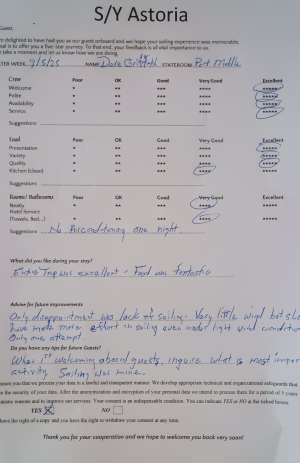 S/Y Astoria
Guest
delighted to have had you as our guest onboard and we hope your sailing experience was memorable.
is to offer you a five star journey. To that end, your feedback is of vital importance to us.
take a moment and let us know how we are doing.
TER WEEK 7/5/25 NAME Dale Griffith STATEROOM Port Middle
Crew Poor OK Good Very Good Excellent
Welcome * ** *** **** *****
Polite * ** *** **** *****
Availability * ** *** **** *****
Service * ** *** **** *****
Suggestions
Food Poor OK Good Very Good Excellent
Presentation * ** *** **** *****
Variety * ** *** **** *****
Quality * ** *** **** *****
Kitchen Island * ** *** **** *****
Suggestions
Rooms/ Bathrooms Poor OK Good Very Good Excellent
Ready * ** *** **** *****
Hotel Service
(Towels, Bed...) * ** *** **** *****
Suggestions No Air conditioning one night
What did you like during your stay?
Entire Trip was excellent - Food was fantastic
Advise for future improvements
Only disappointment was lack of sailing. Very little wind but should
have made more effort in sailing even under light wind conditions
Only one attempt.
Do you have any tips for future Guests?
When 1st welcoming aboard guests, inquire what is most important
activity. Sailing was mine.
you that we process your data in a lawful and transparent manner. We develop appropriate technical and organizational safeguards that
the security of your data. After the anonymization and encryption of your personal data we intend to process them for a period of 5 years
and to improve our services. Your consent is an indispensable condition. You can indicate YES or NO at the ticked boxes.
YES X NO
have the right of a copy and you have the right to withdraw your consent at any time.
Thank you for your cooperation and we hope to welcome you back very soon!